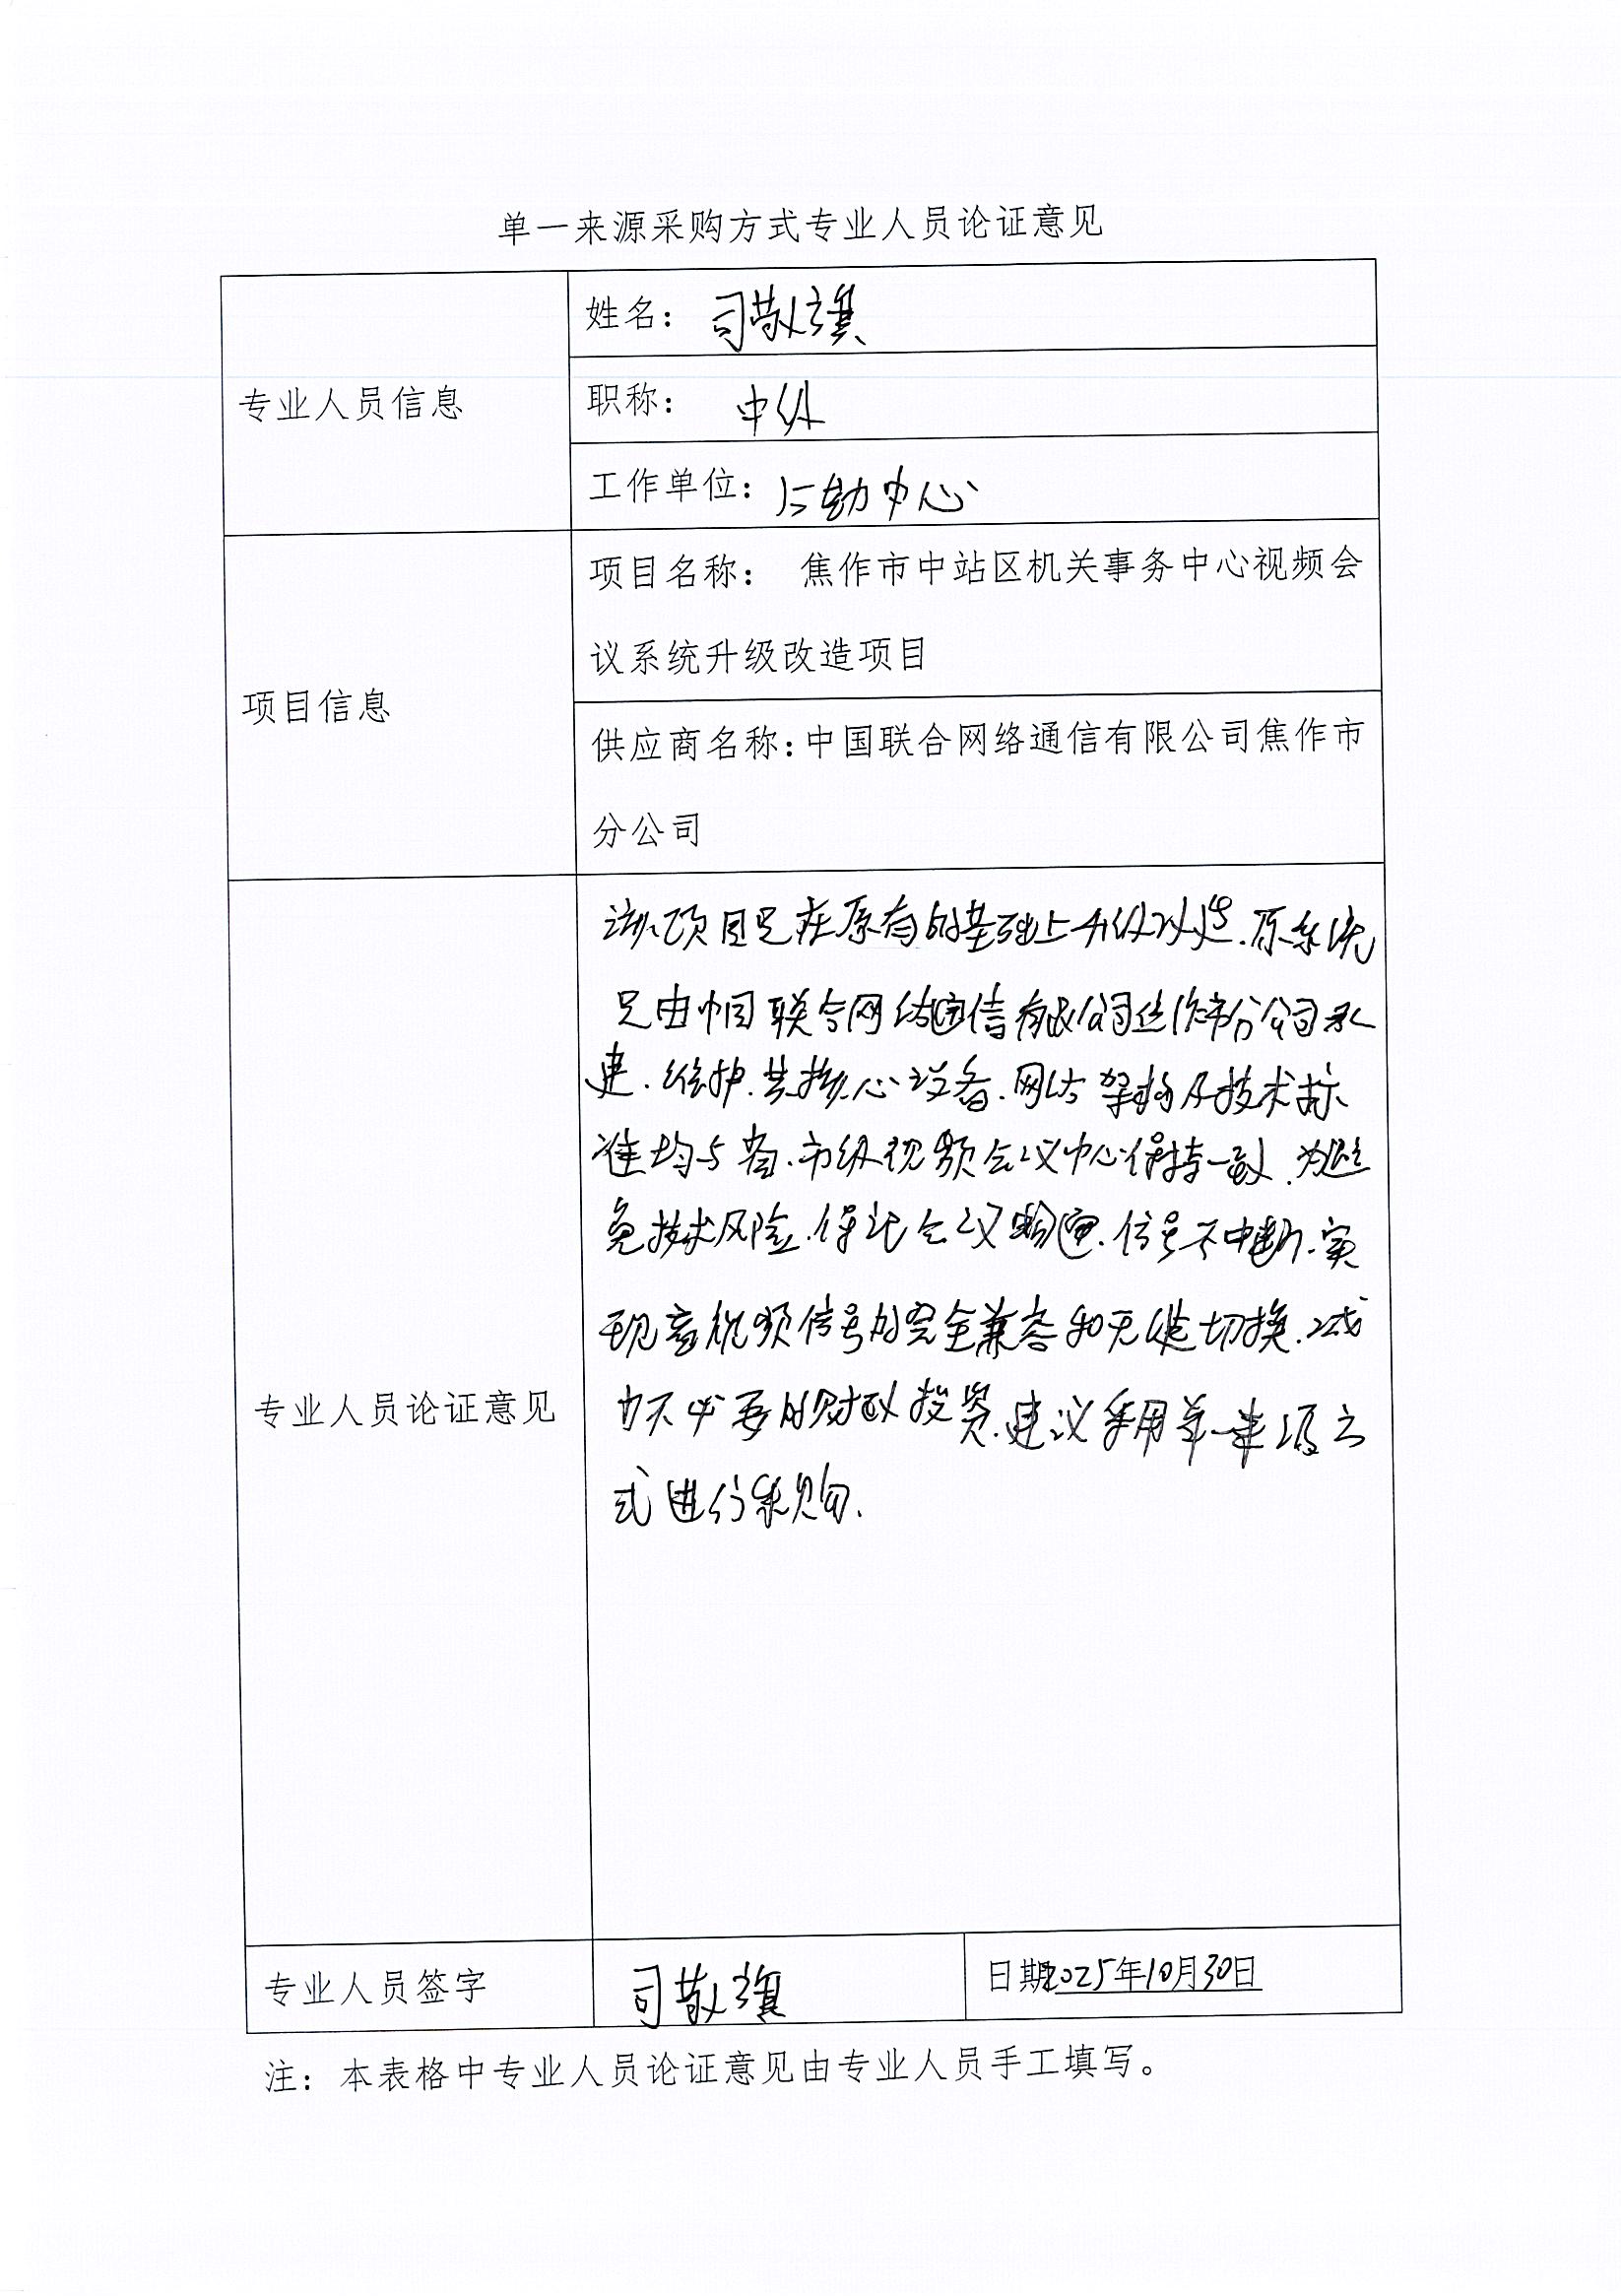 单一来源采购方式专业人员论证意见
专业人员信息
姓名：司敬旗
职称：中级
工作单位：中心
项目信息
项目名称： 焦作市中站区机关事务中心视频会
议系统升级改造项目
供应商名称：中国联合网络通信有限公司焦作市
分公司
专业人员论证意见
该项目是在原有的基础上升级改造.原系统
是由中国联合网络通信有限公司焦作市分公司承
建.维护.其核心设备.网络架构及技术标
准均与省.市级视频会议中心保持一致.为避
免技术风险.保证会议畅通.信号不中断.实
现音视频信号的完全兼容和无缝切换.减
少不必要的财政投资.建议采用单一来源方
式进行采购.
专业人员签字
司敬旗
日期2025年10月30日
注：本表格中专业人员论证意见由专业人员手工填写。